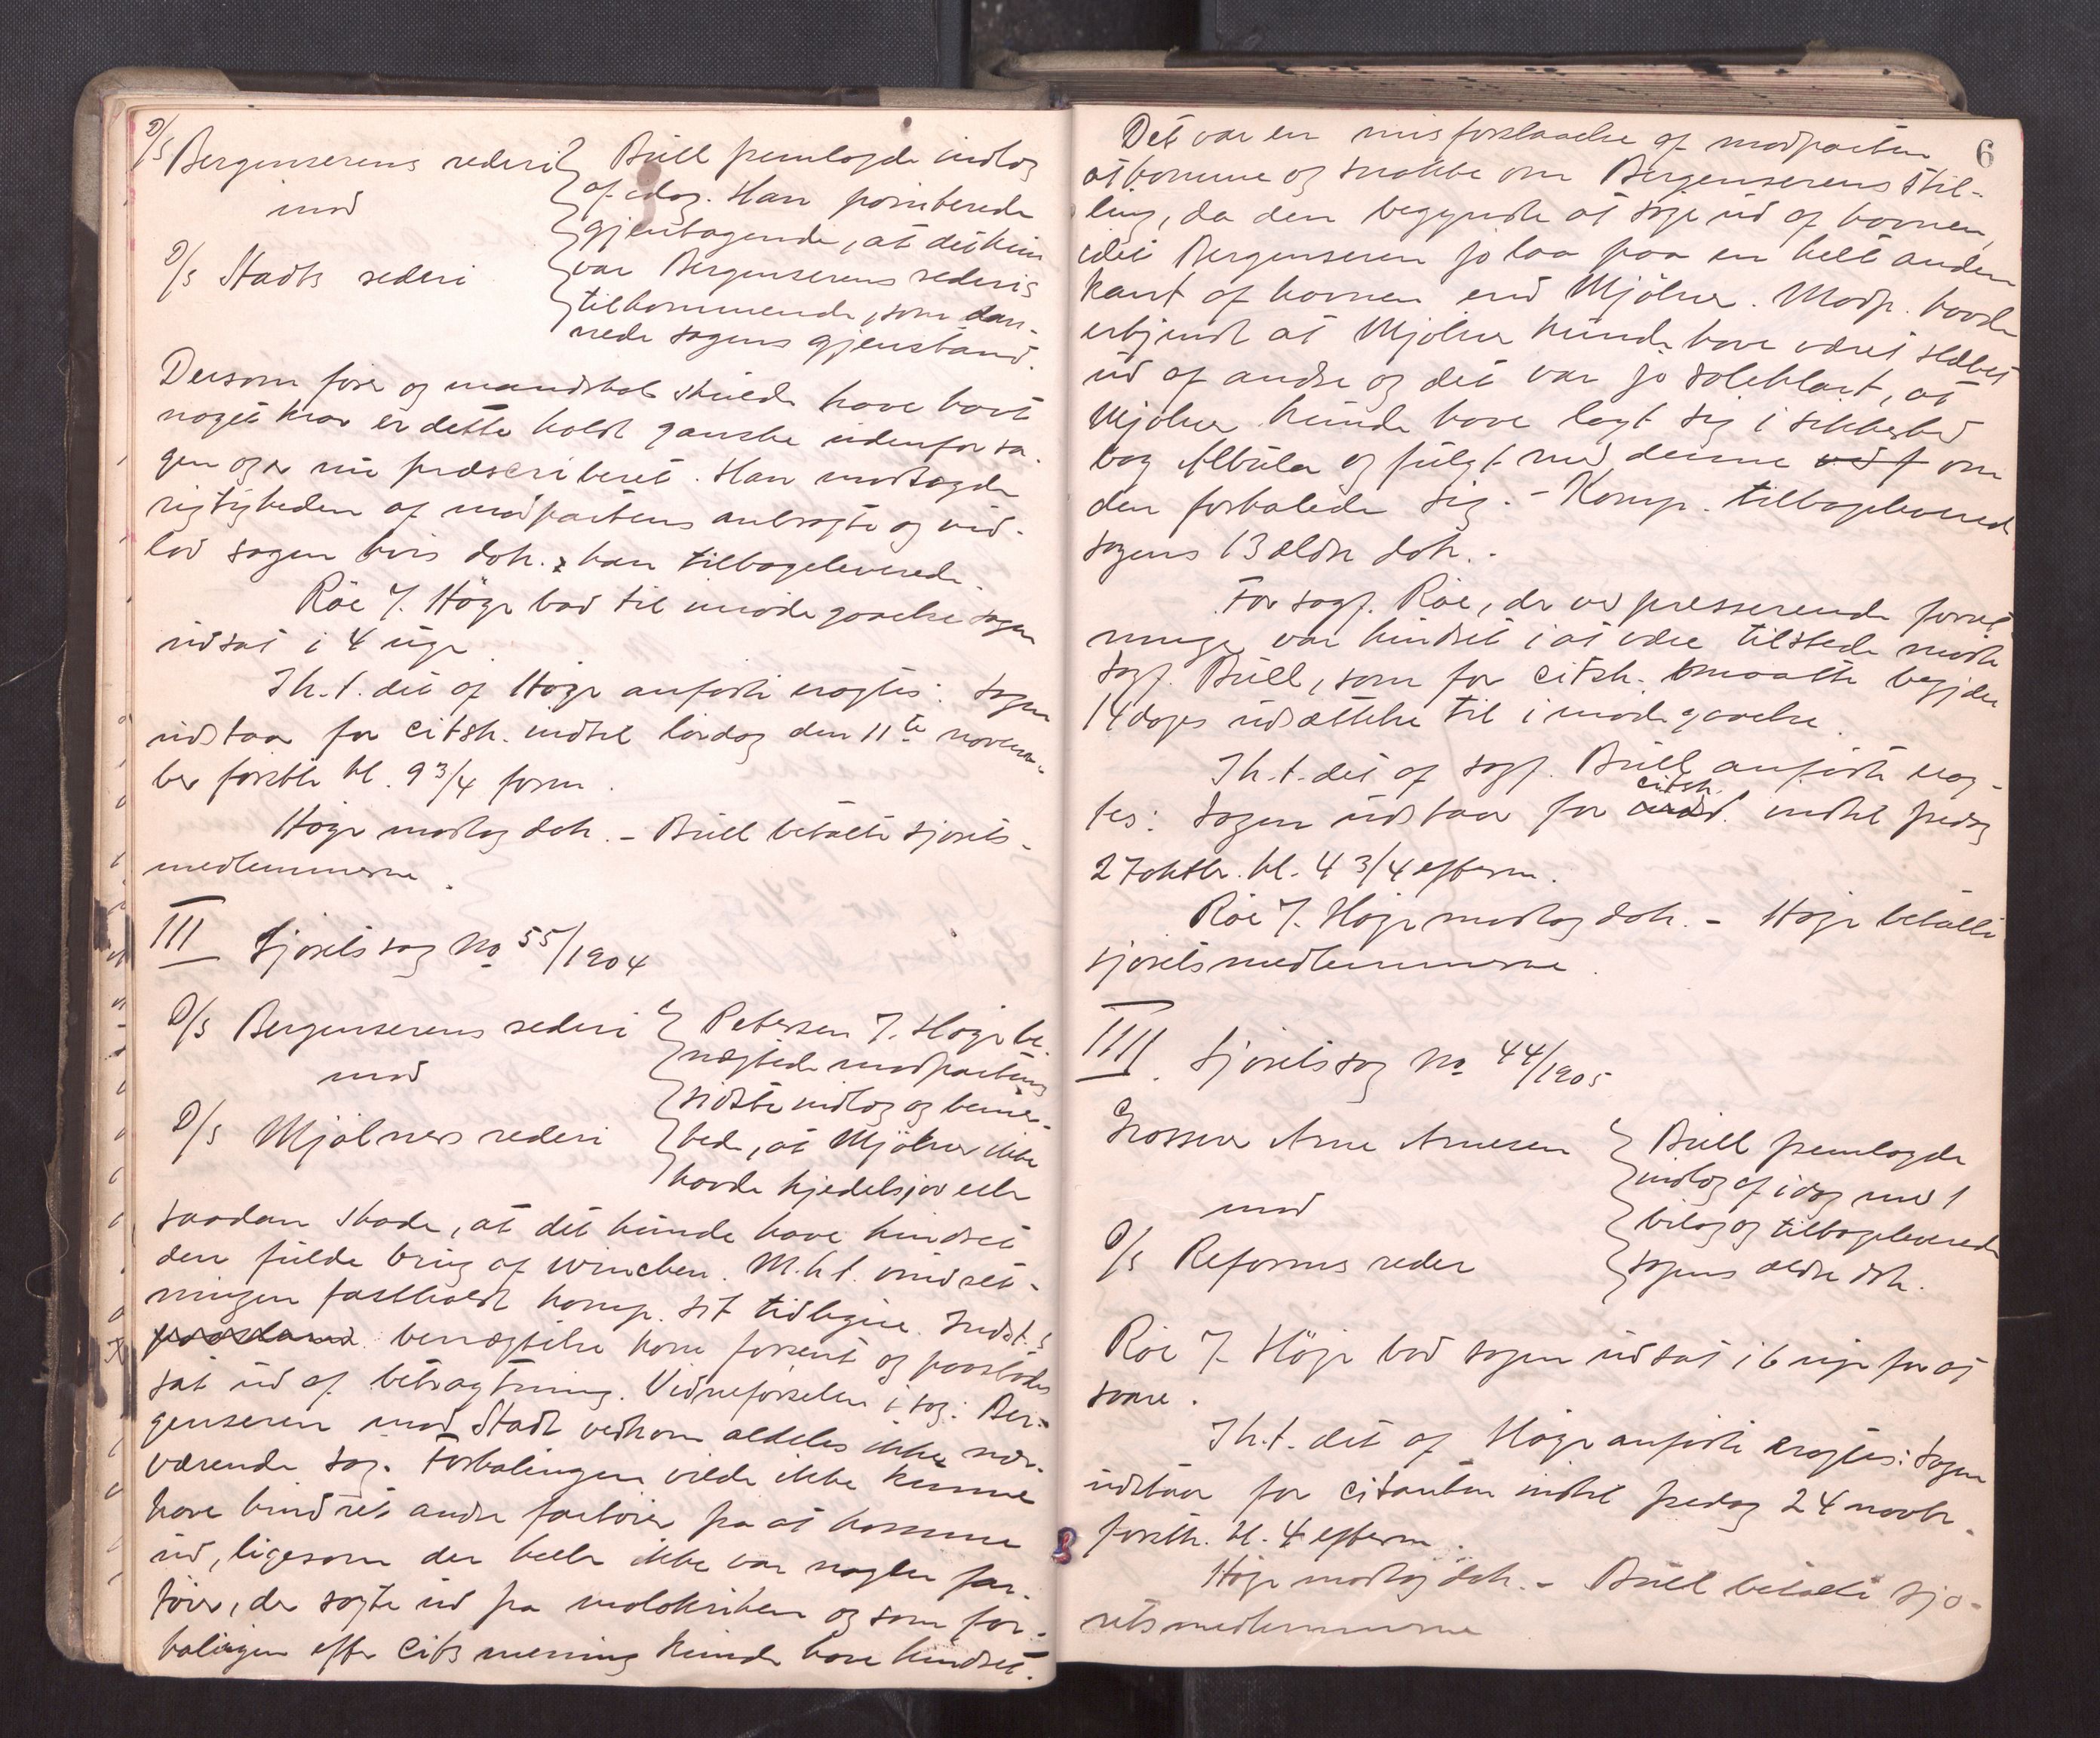 D/S Bergenserens rederi
mod
D/S Stadts rederi
Bull fremlagde indlæg
af idag. Han pointerede
gjentagende, at det kun
var Bergenserens rederis
tilkommende, som dan-
nede sagens gjenstand.
Dersom fører og mandskab skulde have havt
noget krav er dette holdt ganske udenfor sa-
gen og er nu præscriberet. Han modsagde
rigtigheden af modpartens anbragte og ind-
lod sagen hvis dok. han tilbageleverede.
Røe f. Høge bad til imødegaaelse sagen
udsat i 4 uger
Ih.t. det af Høge anførte eragtes: Sagen
udstaar for citsk. indtil lørdag den 11te novem-
ber førstk. kl. 9 3/4 form.
Høge modtog dok. – Bull betalte sjørets-
medlemmerne.
III Sjøretssag No 55/1904
D/S Bergenserens rederi
mod
D/S Mjølners rederi
Petersen f. Høge be-
nægtede modpartens
sidste indlæg og bemær-
kede, at Mjølner ikke
havde kjedelsjau eller
saadan skade, at det kunde have hindret
den fulde brug af winchen. M.h.t. indret-
ningen fastholdt komp. sit tidligere. Indst.s
benægtelse kom forsent og paastodes
sat ud af betragtning. Vidneførselen i sag: Ber-
genseren mod Stadt vedkom aldeles ikke nær-
værende sag. Forhalingen vilde ikke kunne
have hindret andre fartøier fra at komme
ud, ligesom der heller ikke var nogle far-
tøier, der søgte ud fra molokriken og som for-
halingen efter cits mening kunde have hindret.
6
Det var en misforstaaelse af modparten
at komme og snakke om Bergenserens stil-
ling, da den begyndte at søge ud af havnen,
idet Bergenseren jo laa paa en helt anden
kant af havnen end Mjølner. Modp. havde
erkjendt at Mjølner kunde have været slæbet
ud af andre og det var jo soleklart, at
Mjølner kunde have lagt sig i sikkerhed
bag Albula og fulgt med denne om
den forhalede sig. – Komp. tilbageleverede
sagens 13 ældre dok. –
For sagf. Røe, der ved presserende forret-
ninger var hindret i at være tilstede mødte
sagf. Bull, som for citsk. maatte begjære
14 dages udsættelse til imødegaaelse.
Ih.t. det af sagf. Bull anførte erag-
tes: Sagen udstaar for citsk. indtil fredag
27 oktbr. kl. 4 3/4 efterm.
Røe f. Høge modtog dok. – Høge betalte
sjøretsmedlemmerne.
IIII. Sjøretssag No 44/1905
Grosserer Arne Arnesen
mod
D/S Reforms reder
Bull fremlagde
indlæg af idag med 1
bilag og tilbageleverede
sagens ældre dok.
Røe f. Høge bad sagen udsat i 6 uger for at
svare.
Ih.t. det af Høge anførte eragtes: Sagen
udstaar for citanten indtil fredag 24 novbr.
førstk. kl. 4 efterm.
Høge modtog dok. – Bull betalte sjø-
retsmedlemmerne